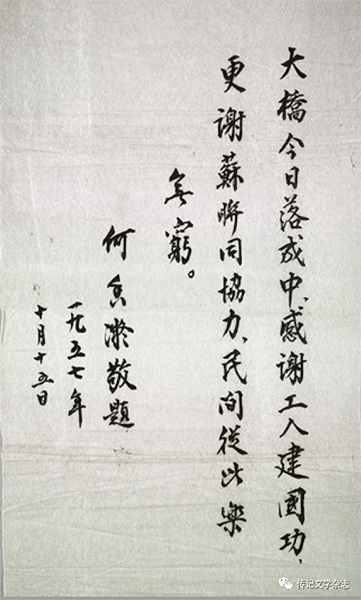 大橋今日落成中、感謝工人建國功、
更謝蘇聯同協力、民间從此樂
無窮。
何香凝敬題
一九五七年
十月十五日
传记文学杂志